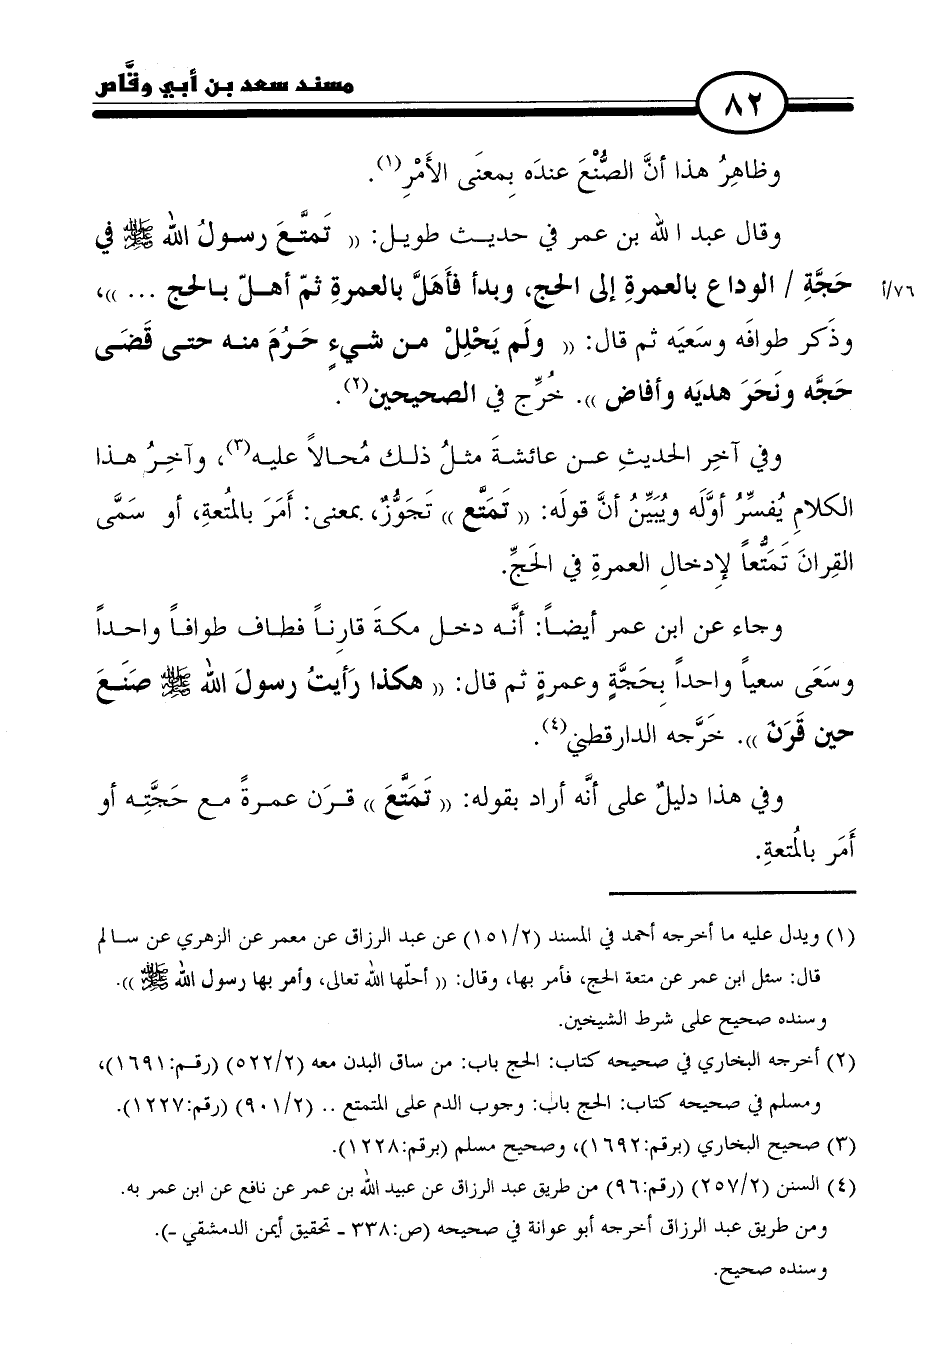 مسند سعد بن أبي وقَّاص
٨٢
وظاهِرُ هذا أنَّ الصُّنْعَ عندَه بِمعنَى الأَمْرِ(١).
وقال عبد الله بن عمر في حديث طويل: (( تَمتَّعَ رسولُ الله ﷺ في
حَجَّةِ / الوداع بالعمرةِ إلى الحج، وبدأ فأَهَلَّ بالعمرةِ ثمّ أهلّ بالحج ... ))،
٧٦/أ
وذَكر طوافَه وسَعيَه ثم قال: (( ولَم يَحْلِلْ من شيءٍ حَرُمَ منه حتى قَضَى
حجَّه ونَحَرَ هديَه وأفاض )). خُرِّج في الصحيحين(٢).
وفي آخِر الحديثِ عن عائشةَ مثلُ ذلك مُحالاً عليه(٣)، وآخِرُ هذا
الكلامِ يُفسِّرُ أوَّلَه ويُبَيِّنُ أنَّ قولَه: (( تَمتَّع )) تَجَوُّزٌ، بمعنى: أَمَرَ بالمُتعةِ، أو سَمَّى
القِرانَ تَمتُّعاً لإدخالِ العمرةِ في الحَجِّ.
وجاء عن ابن عمر أيضاً: أنَّه دخل مكةَ قارِناً فطاف طوافاً واحداً
وسَعَى سعياً واحداً بِحَجَّةٍ وعمرةٍ ثم قال: (( هكذا رَأيتُ رسولَ الله ﷺ صنَعَ
حين قَرَنَ )). خَرَّجه الدارقطني(٤).
وفي هذا دليلٌ على أنَّه أراد بقوله: (( تَمتَّعَ )) قرَن عمرةً مع حَجَّتِه أو
أَمَر بالمُتعةِ.
(١) ويدل عليه ما أخرجه أحمد في المسند (١٥١/٢) عن عبد الرزاق عن معمر عن الزهري عن سالم
قال: سئل ابن عمر عن متعة الحج، فأمر بها، وقال: (( أحلّها الله تعالى، وأمر بها رسول الله ﷺ )).
وسنده صحيح على شرط الشيخين.
(٢) أخرجه البخاري في صحيحه كتاب: الحج باب: من ساق البدن معه (٥٢٢/٢) (رقم:١٦٩١)،
ومسلم في صحيحه كتاب: الحج باب: وجوب الدم على المتمتع .. (٩٠١/٢) (رقم:١٢٢٧).
(٣) صحيح البخاري (برقم:١٦٩٢)، وصحيح مسلم (برقم:١٢٢٨).
(٤) السنن (٢٥٧/٢) (رقم:٩٦) من طريق عبد الرزاق عن عبيد الله بن عمر عن نافع عن ابن عمر به.
ومن طريق عبد الرزاق أخرجه أبو عوانة في صحيحه (ص:٣٣٨ ـ تحقيق أيمن الدمشقي ـ).
وسنده صحيح.